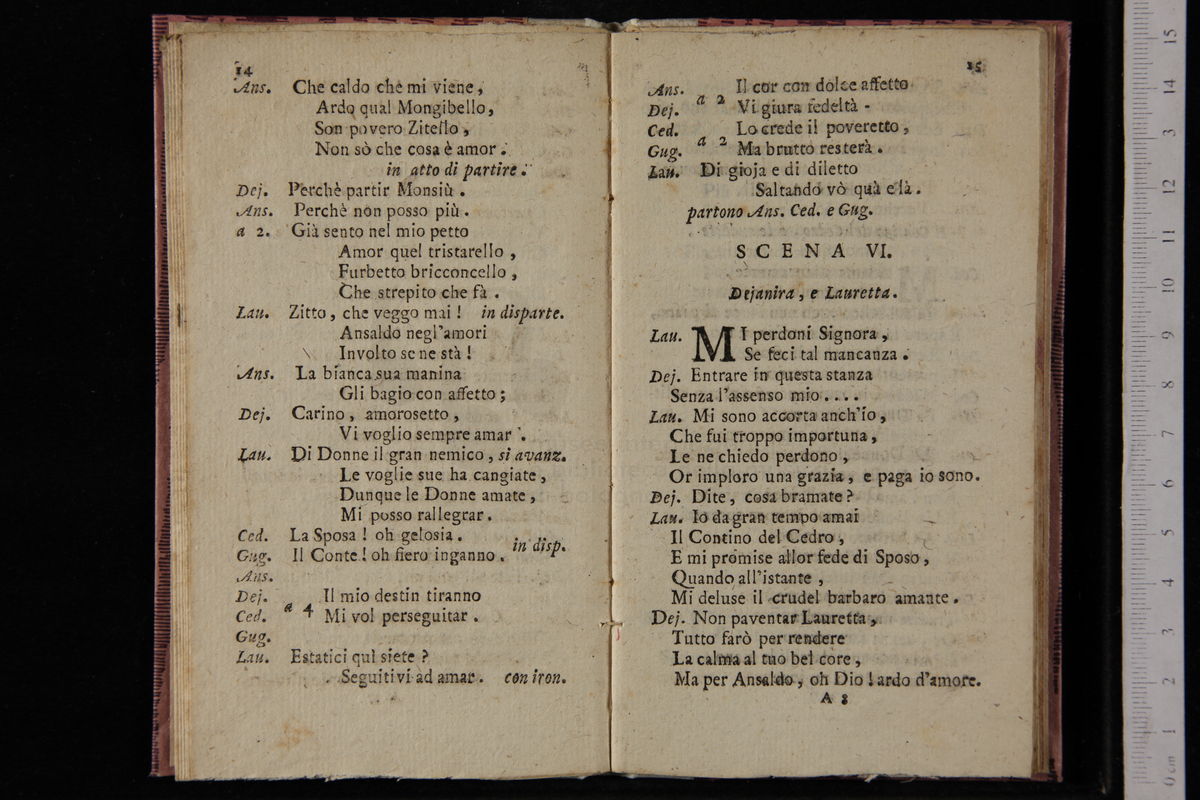 14
Ans. Che caldo che mi viene,
Ardo qual Mongibello,
Son povero Zitello,
Non sò che cosa è amor.
in atto di partire.
Dej. Perchè partir Monsiù.
Ans. Perchè non posso più.
a 2. Già sento nel mio petto
Amor quel tristarello,
Furbetto bricconcello,
Che strepito che fà.
Lau. Zitto, che veggo mai! in disparte.
Ansaldo negl'amori
Involto se ne stà!
Ans. La bianca sua manina
Gli bagio con affetto;
Dej. Carino, amorosetto,
Vi voglio sempre amar.
Lau. Di Donne il gran nemico, si avanz.
Le voglie sue ha cangiate,
Dunque le Donne amate,
Mi posso rallegrar.
Ced. La Sposa! oh gelosia.
Gug. Il Conte! oh fiero inganno. in disp.
Ans.
Dej. Il mio destin tiranno
Ced. a 4 Mi vol perseguitar.
Gug.
Lau. Estatici quì siete?
Seguitivi ad amar. con iron.
15
Ans. Il cor con dolce affetto
Dej. a 2 Vi giura fedeltà -
Ced. Lo crede il poveretto,
Gug. a 2 Ma brutto resterà.
Lau. Di gioja e di diletto
Saltando vò quà e là.
partono Ans. Ced. e Gug.
SCENA VI.
Dejanira, e Lauretta.
Lau. MI perdoni Signora,
Se feci tal mancanza.
Dej. Entrare in questa stanza
Senza l'assenso mio....
Lau. Mi sono accorta anch'io,
Che fui troppo importuna,
Le ne chiedo perdono,
Or imploro una grazia, e paga io sono.
Dej. Dite, cosa bramate?
Lau. Io da gran tempo amai
Il Contino del Cedro,
E mi promise allor fede di Sposo,
Quando all'istante,
Mi deluse il crudel barbaro amante.
Dej. Non paventar Lauretta,
Tutto farò per rendere
La calma al tuo bel core,
Ma per Ansaldo, oh Dio! ardo d'amore.
A 8
0 cm 1 2 3 4 5 6 7 8 9 10 11 12 13 14 15